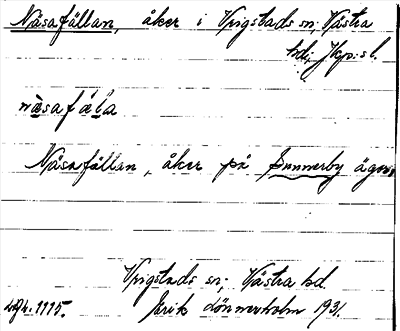 Näsafållan, åker i Vrigstads sn; Västra
hd; Jkp:s l.
näsafåla
Näsafållan, åker på Gunnerby ägor,
Vrigstads sn; Västra hd.
1115. Erik Lönnerholm 193.